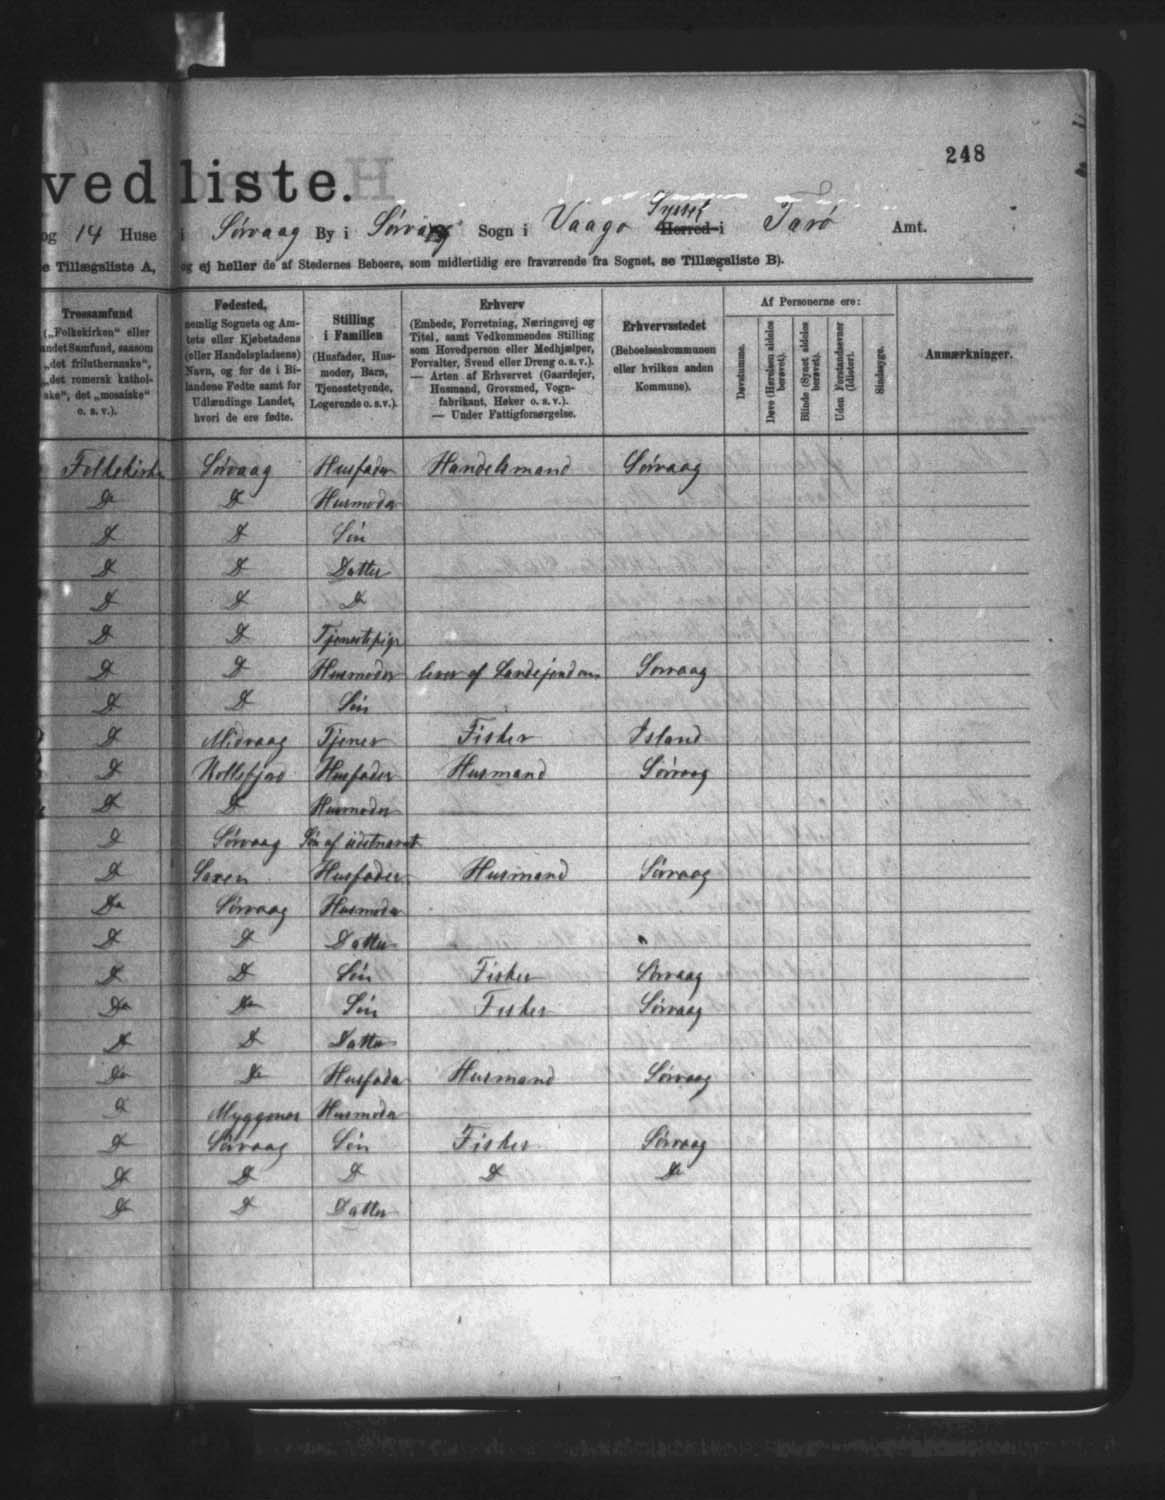 248
ved liste.
og 14 Huse i Sørvaag By i Sørvaag Sogn i Vaagø Syssel Herred i Færø Amt.
e Tillægsliste A, og ej heller de af Stedernes Beboere, som midlertidig ere fraværende fra Sognet, se Tillægsliste B).
Trossamfund
(„Folkekirken“ eller
andet Samfund, saasom
„det frilutheranske“,
„det romersk kathol-
ske“, det „mosaiske“
o. s. v.).
Fødested,
nemlig Sognets og Am-
tets eller Kjøbstadens
(eller Handelspladsens)
Navn, og for de i Bi-
landene Fødte samt for
Udlændinge Landet,
hvori de ere fødte.
Stilling
i Familien
(Husfader, Hus-
moder, Barn,
Tjenestetyende,
Logerende o.s.v.).
Erhverv
(Embede, Forretning, Næringsvej og
Titel, samt Vedkommendes Stilling
som Hovedperson eller Medhjælper,
Forvalter, Svend eller Dreng o.s.v.).
— Arten af Erhvervet (Gaardejer,
Husmand, Grovsmed, Vogn-
fabrikant, Høker o. s. v.).
— Under Fattigforsørgelse.
Erhvervsstedet
(Beboelseskommunen
eller hvilken anden
Kommune).
Af Personerne ere:
Døvstumme.
Døve (Hørelsen aldeles
berøvet).
Blinde (Synet aldeles
berøvet).
Uden Forstandsevner
(Idioter).
Sindssyge.
Anmærkninger.
Folkekirke Sørvaag Husfader Handelsmand Sørvaag
Do Do Husmoder
Do Do Søn
Do Do Datter
Do Do Do
Do Do Tjenestepige
Do Do Husmoder lever af Landejendom Sørvaag
Do Do Søn
Do Midvaag Tjener Fisker Island
Do Kollefjord Husfader Husmand Sørvaag
Do Do Husmoder
Do Sørvaag Søn af
Do Saxen Husfader Husmand Sørvaag
Do Sørvaag Husmoder
Do Do Datter
Do Do Søn Fisker Sørvaag
Do Do Søn Fisker Sørvaag
Do Do Datter
Do Do Husfader Husmand Sørvaag
Do Myggenæs Husmoder
Do Sørvaag Søn Fisker Sørvaag
Do Do Do Do Do
Do Do Datter